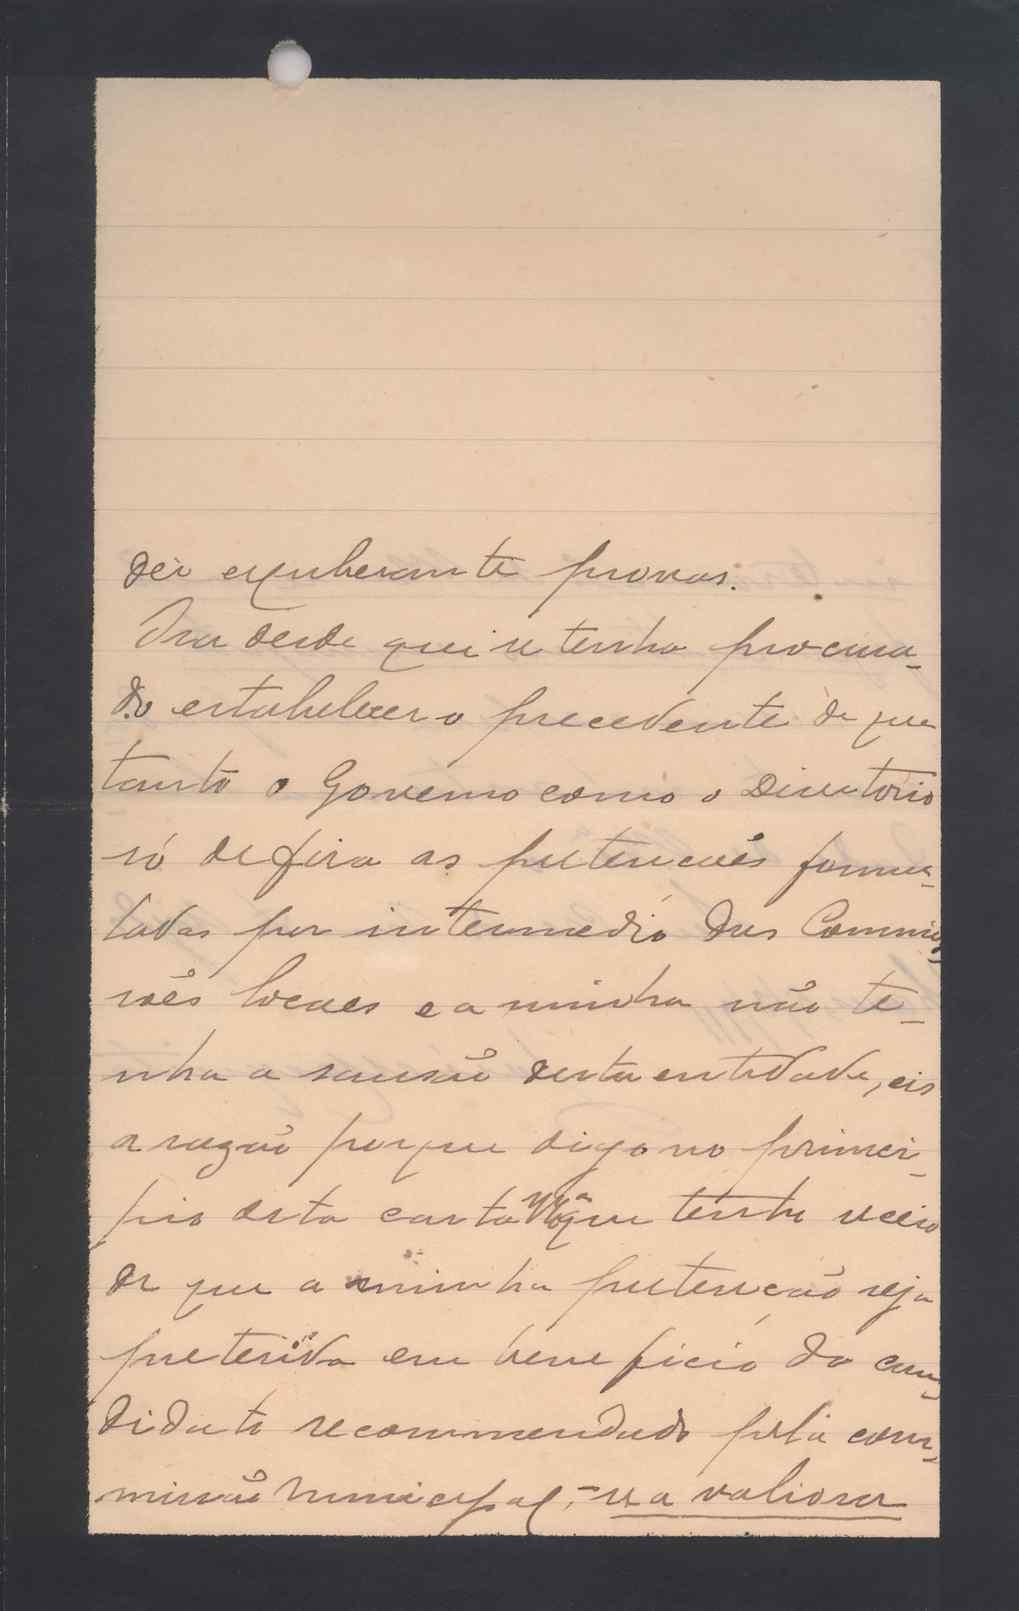 der exuberante provas.
Ora desde que se tenha procura-
do estabelecer o precedente de que
tanto o Governo como o Directorio
só defira as pretenções formu-
ladas por intermedio das Commis-
sões locaes e a minha não te-
nha a sansão desta entidade, eis
a razão porque digo no princi-
pio desta carta que tenho receio
de que a minha pretenção seja
preterida em beneficio do can-
didato recommendado pela com-
missão Municipal, - se a valiosa